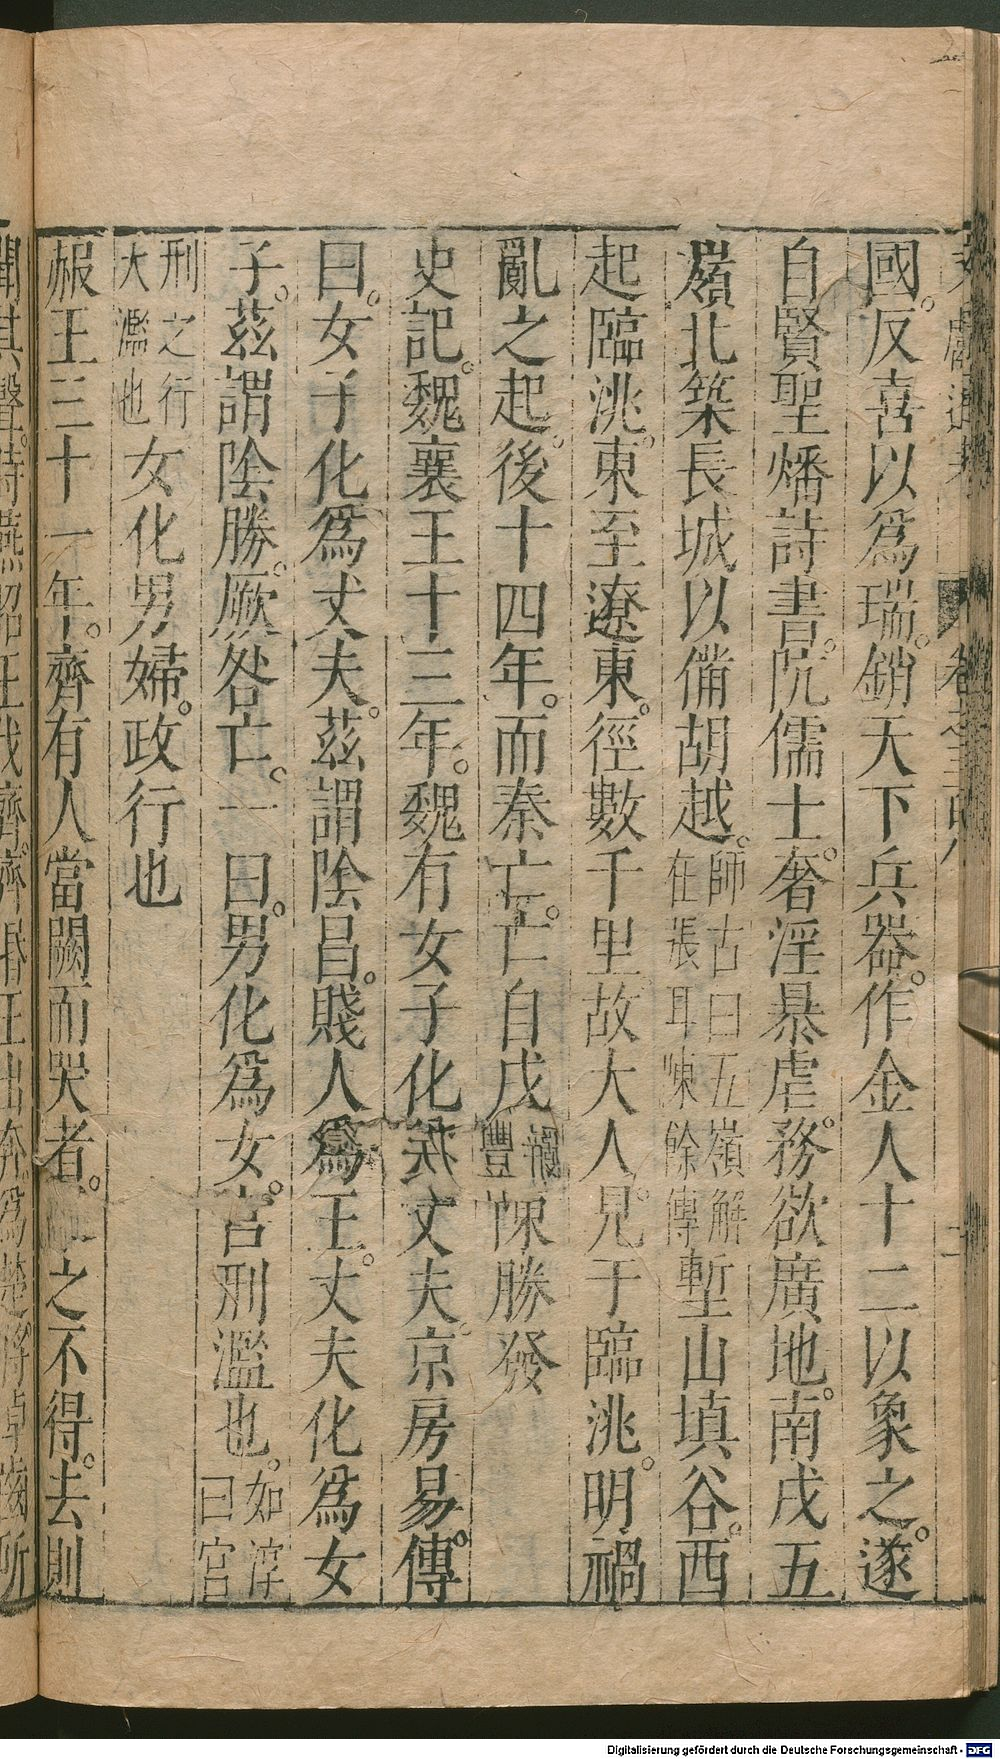 國。反喜以爲瑞。銷天下兵器。作金人十二以象之。遂
自賢聖燔詩書。阬儒士。奢淫暴虐。務欲廣地。南戍五
嶺北築長城以備胡越。師古曰五嶺解在張耳陳餘傳塹山填谷。西
起臨洮。東至遼東。徑數千里故大人見于臨洮。明禍
亂之起。後十四年。而秦亡。亡自戍陳勝發
史記。魏襄王十三年。魏有女子化爲丈夫。京房易傳
曰。女子化爲丈夫。茲謂陰昌。賤人爲王。丈夫化爲女
子。茲謂陰勝。厥咎亡。一曰。男化爲女。宮刑濫也。如淳曰宮
刑之行大濫也女化男婦。政行也
赧王三十一年。齊有人當闕而哭者。之不得。去則
文獻通考 卷之三百八
Digitalisierung gefördert durch die Deutsche Forschungsgemeinschaft - DFG